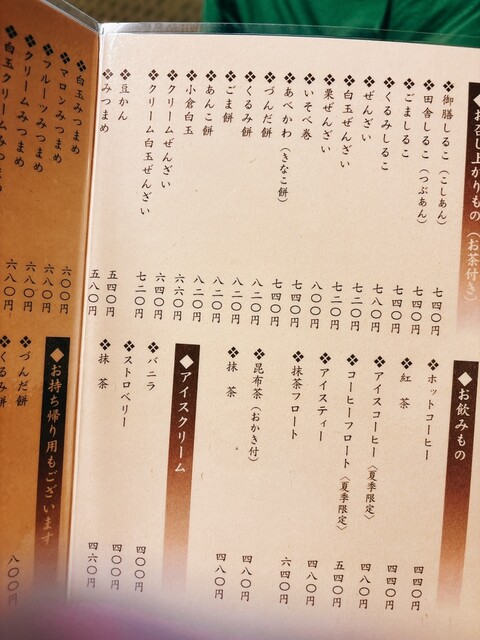 ◆お召し上がりもの（お茶付き）
❖御膳しるこ（こしあん） 七四〇円
❖田舎しるこ（つぶあん） 七四〇円
❖ごましるこ 七四〇円
❖くるみしるこ 七八〇円
❖ぜんざい 七二〇円
❖白玉ぜんざい 七二〇円
❖栗ぜんざい 八〇〇円
❖いそべ巻 七四〇円
❖あべかわ（きなこ餅） 七四〇円
❖づんだ餅 八二〇円
❖くるみ餅 八二〇円
❖ごま餅 八二〇円
❖あんこ餅 八二〇円
❖小倉白玉 六六〇円
❖クリームぜんざい 六四〇円
❖クリーム白玉ぜんざい 七二〇円
❖豆かん 五四〇円
❖みつまめ 五八〇円
◆お飲みもの
❖ホットコーヒー 四四〇円
❖紅 茶 四四〇円
❖アイスコーヒー〈夏季限定〉 四八〇円
❖コーヒーフロート〈夏季限定〉 五四〇円
❖アイスティー 四八〇円
❖抹茶フロート 六四〇円
❖昆布茶（おかき付） 四八〇円
❖抹 茶 四八〇円
◆アイスクリーム
❖バニラ 四〇〇円
❖ストロベリー 四〇〇円
❖抹 茶 四六〇円
❖白玉みつまめ 六〇〇円
❖マロンみつまめ 六八〇円
❖フルーツみつまめ 六八〇円
❖クリームみつまめ 六八〇円
❖白玉クリームみつまめ
◆お持ち帰り用もございます
❖づんだ餅 八〇〇円
❖くるみ餅